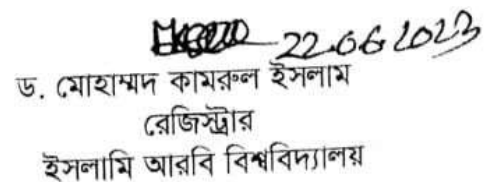 22.06.2023
ড. মোহাম্মদ কামরুল ইসলাম
রেজিস্ট্রার
ইসলামি আরবি বিশ্ববিদ্যালয়